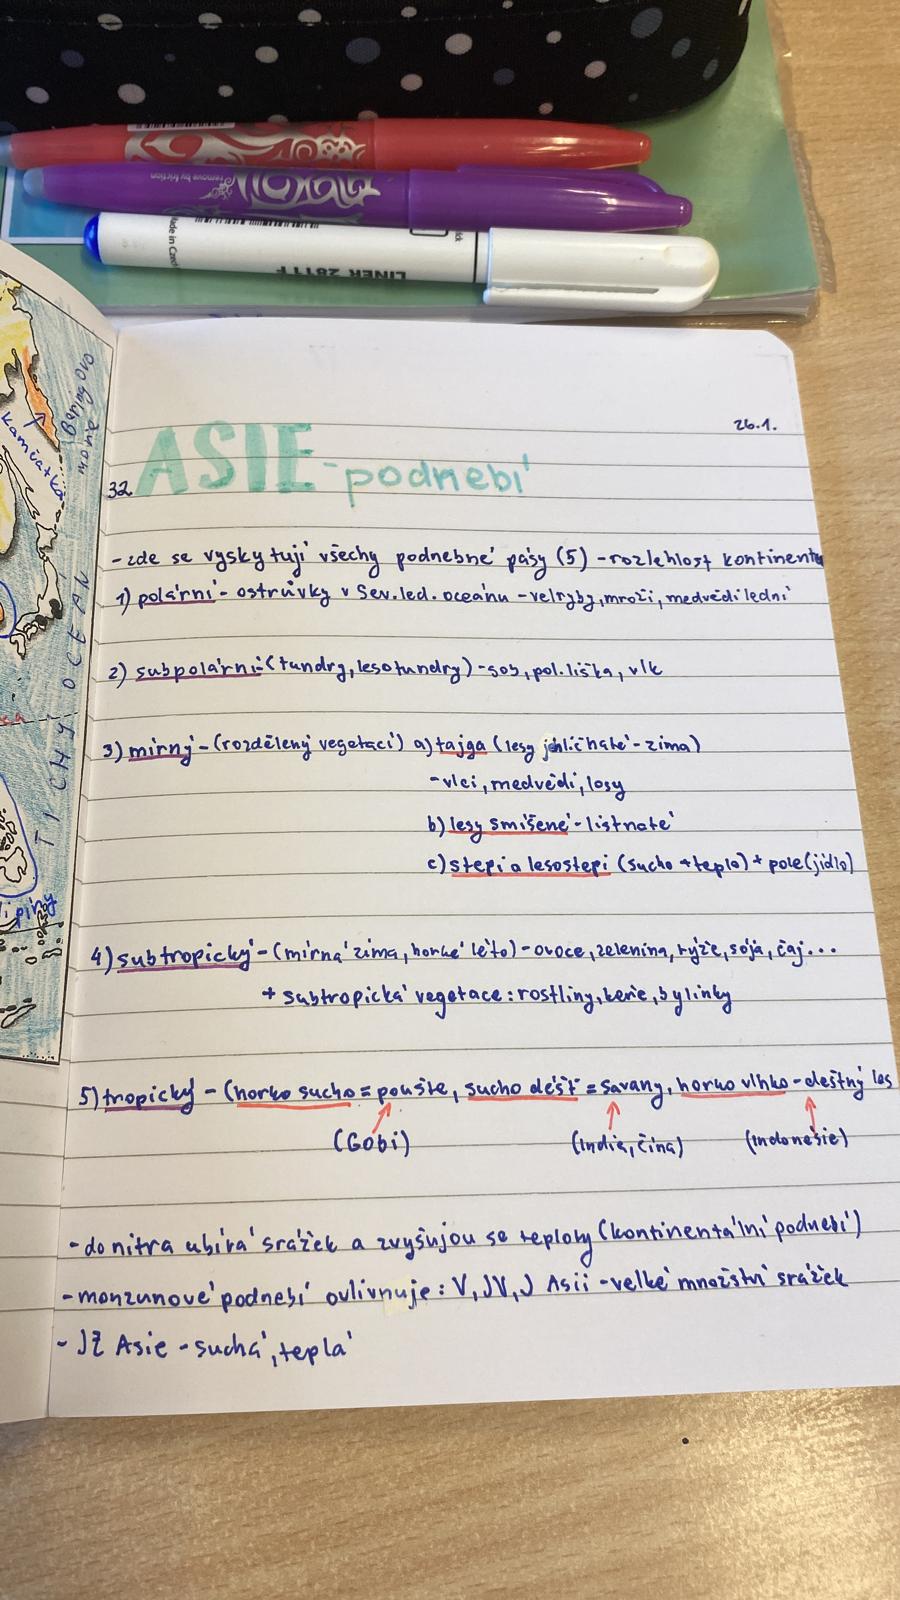 remove by friction
Made in Czech
LINER 2811 F
Kamčatka
Beringovo
moře
TICHÝ OCEÁN
26.1.
32 ASIE - podnebí
- zde se vyskytují všechy podnebné pásy (5) - rozlehlost kontinentu
1) polární - ostrůvky v Sev. led. oceánu - velryby, mroži, medvědi lední
2) subpolární - (tundry, lesotundry) - sob, pol. liška, vlk
3) mírný - (rozdělený vegetací) a) tajga (lesy jehličnaté - zima)
- vlci, medvědi, losy
b) lesy smíšené - listnaté
c) stepi a lesostepi (sucho + teplo) + pole (jídlo)
4) subtropický - (mírná zima, horké léto) - ovoce, zelenina, rýže, sója, čaj...
+ subtropická vegetace: rostliny, keře, bylinky
5) tropický - (horko sucho = pouště, sucho déšť = savany, horko vlhko - deštný les
(Gobi) (Indie, Čína) (Indonésie)
- do nitra ubírá srážek a zvyšujou se teploty (kontinentální podnebí)
- monzunové podnebí ovlivnuje: V, JV, J Asii - velké množství srážek
- JZ Asie - suchá, teplá